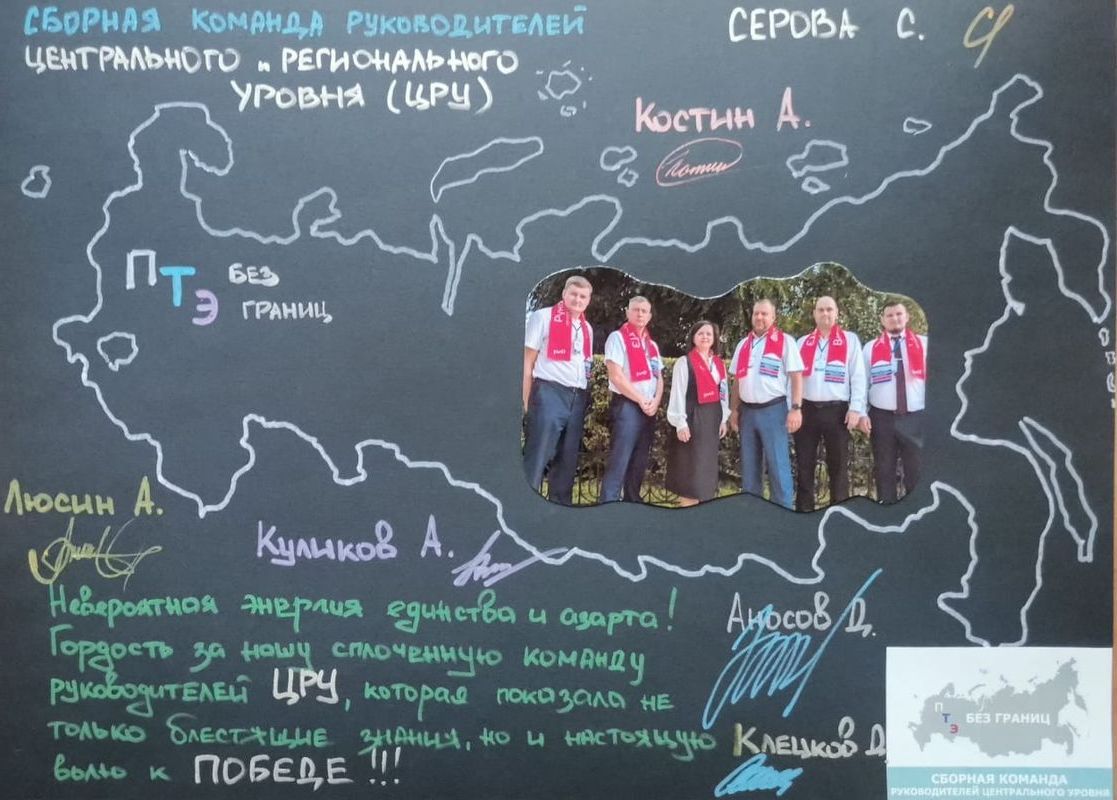 СБОРНАЯ КОМАНДА РУКОВОДИТЕЛЕЙ
ЦЕНТРАЛЬНОГО и РЕГИОНАЛЬНОГО
УРОВНЯ (ЦРУ)
СЕРОВА С.
Костин А.
ПТЭ БЕЗ
ГРАНИЦ
Люсин А.
Куликов А.
Невероятная энергия единства и азарта!
Гордость за нашу сплоченную команду
руководителей ЦРУ, которая показала не
только блестящие знания, но и настоящую
волю к ПОБЕДЕ!!!
Аносов Д.
Клецков Д
ПТЭ БЕЗ ГРАНИЦ
СБОРНАЯ КОМАНДА
РУКОВОДИТЕЛЕЙ ЦЕНТРАЛЬНОГО УРОВНЯ